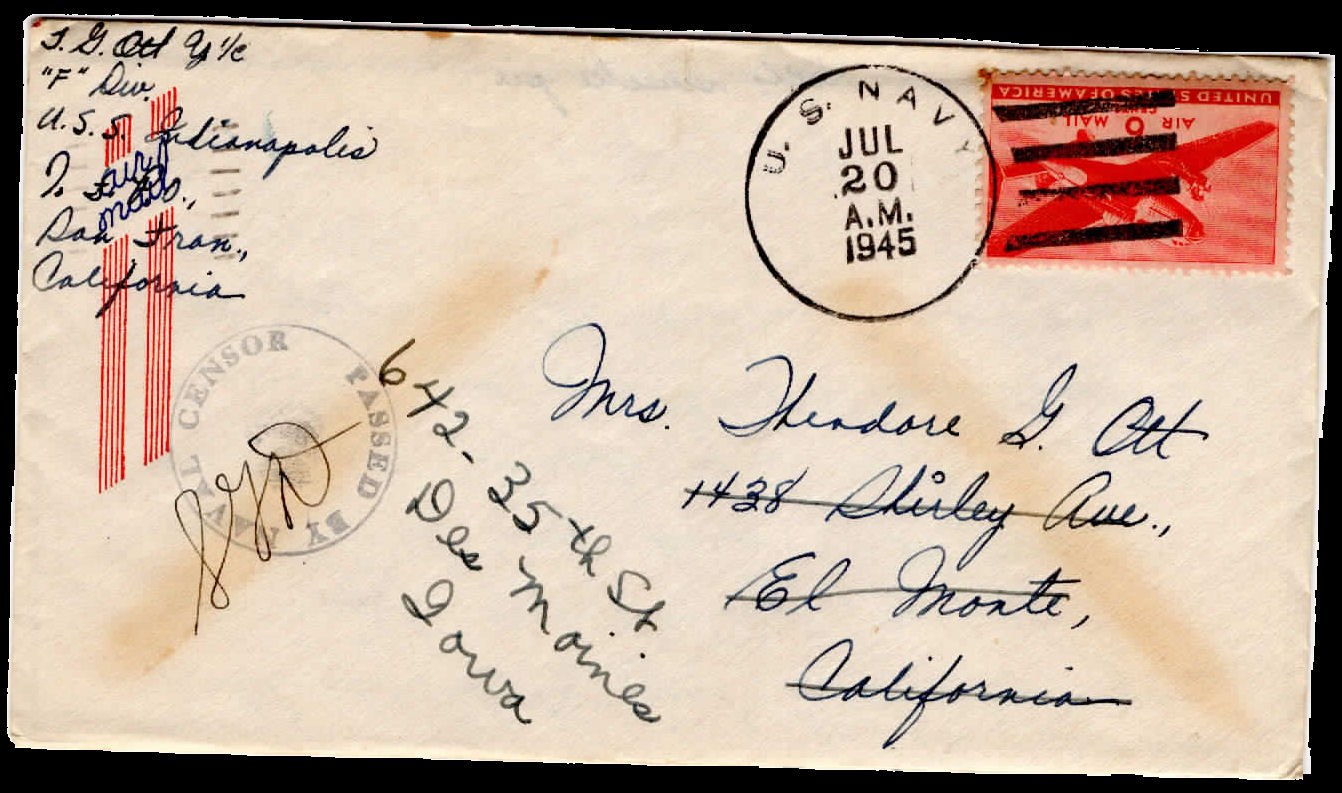 T. G. Ott Y 1/c
"F" Div.
U.S.S. Indianapolis
air
mail
San Fran.,
California
U.S. NAVY
JUL
20
A.M.
1945
UNITED STATES OF AMERICA
6 CENTS
AIR MAIL
PASSED BY NAVAL CENSOR
Mrs. Theodore G. Ott
1438 Shirley Ave.,
El Monte,
California
642-35th St.
Des Moines
Iowa